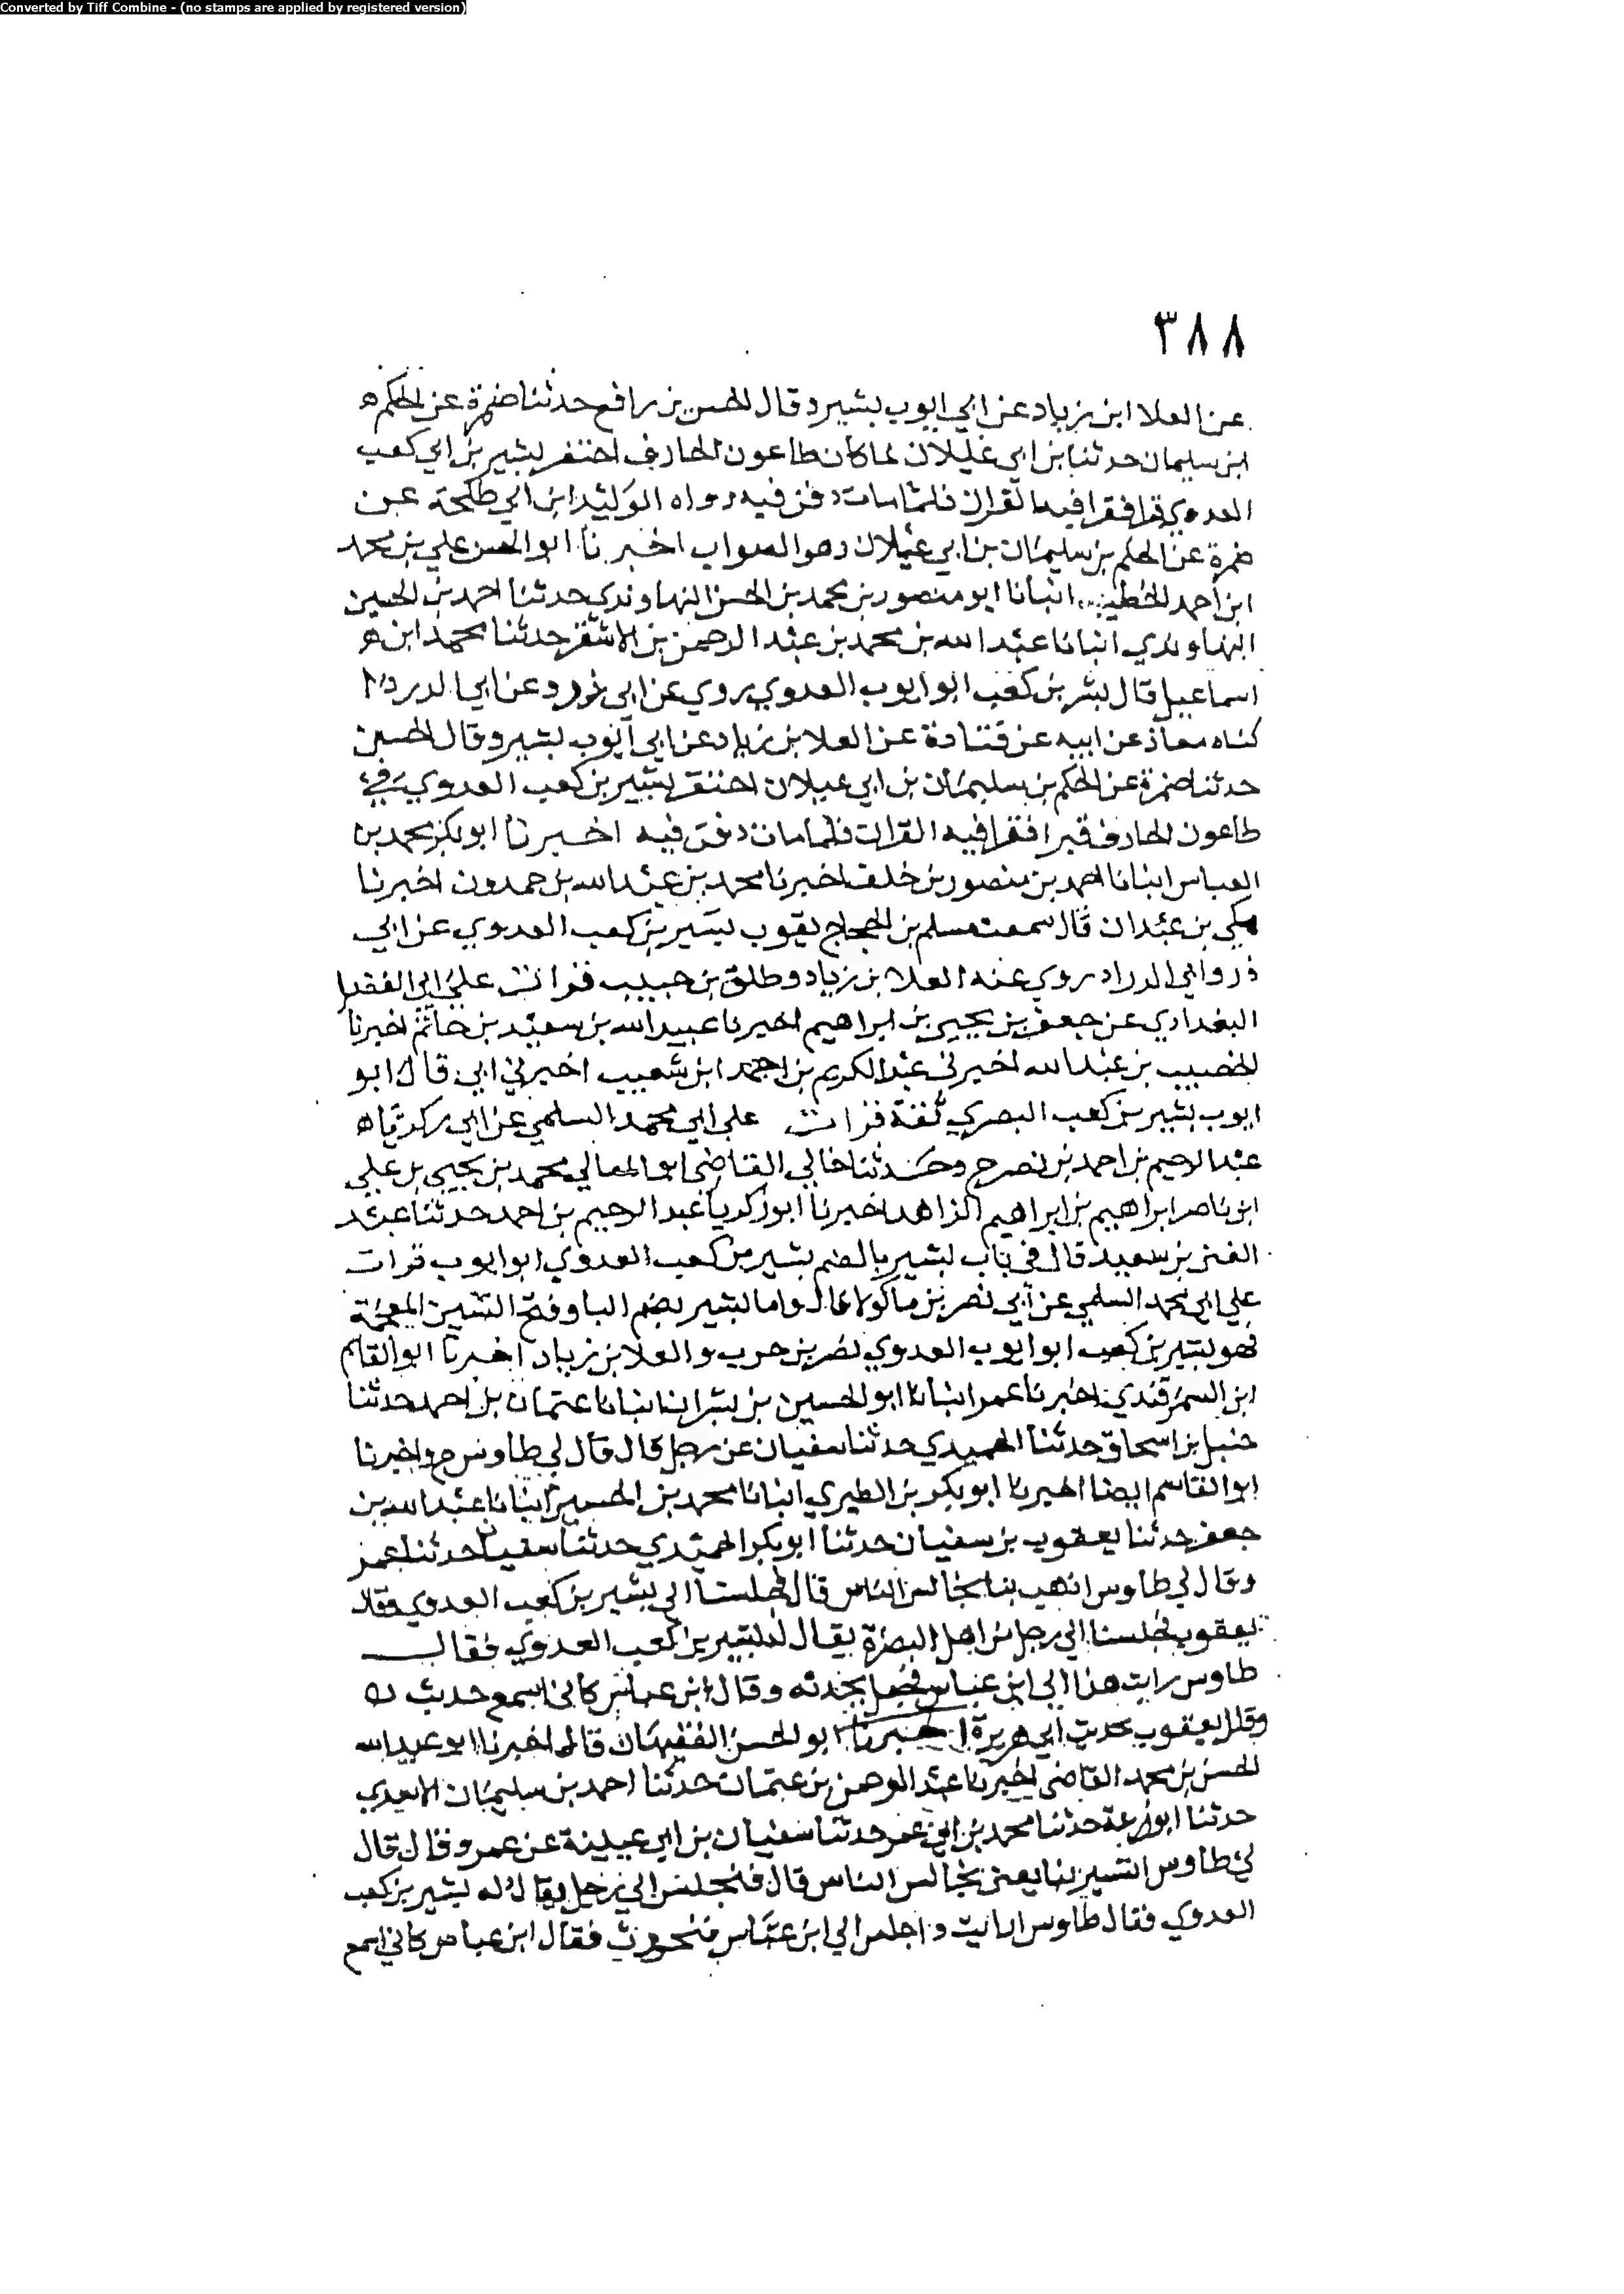 Converted by Tiff Combine - (no stamps are applied by registered version)
٣٨٨
عن العلا ابن زياد عن ابي ايوب بشير وقال الحسن بن رافع حدثنا ضمرة عن الحكم
ابن سليمان حدثنا بن ابي غيلان لما كان طاعون الجارف احتفر بشير بن ابي كعب
العدوي قبرا فقرا فيه القران فلما مات دفن فيه رواه الوليد ابن ابي طلحة عن
ضمرة عن الحكم بن سليمان بن ابي غيلان وهو الصواب اخبرنا ابو الحسن علي بن محمد
ابن احمد الخطيب انبانا ابو منصور بن محمد بن الحسن النهاوندي حدثنا احمد بن الحسين
النهاوندي انبانا عبد الله بن محمد بن عبد الرحمن بن الاشقر حدثنا محمد ابن
اسماعيل قال بشير بن كعب ابو ايوب العدوي روي عن ابي ذر وعن ابي الدرداء
كناه معاذ عن ابيه عن قتادة عن العلا بن زياد عن ابي ايوب بشير وقال الحسين
حدثنا ضمرة عن الحكم بن سليمان بن ابي غيلان احتفر بشير بن كعب العدوي في
طاعون الجارف قبرا فقرا فيه القران فلما مات دفن فيه اخبرنا ابو بكر محمد بن
العباس انبانا احمد بن منصور بن خلف اخبرنا محمد بن عبد الله بن حمدون اخبرنا
مكي بن عبدان قال سمعت مسلم بن الحجاج يقوب بشير بن كعب العدوي عن ابي
ذر وابي الدردا روي عنه العلا بن زياد وطلق بن حبيب قرات علي ابي الفضل
البغدادي عن جعفر بن يحيي بن ابراهيم اخبرنا عبيد الله بن سعيد بن حاتم اخبرنا
الخصيب بن عبد الله اخبرني عبد الكريم بن احمد ابن شعيب اخبرني ابي قال ابو
ايوب بشير بن كعب البصري ثقة قرات علي ابي محمد السلمي عن ابي زكريا
عبد الرحيم بن احمد بن نصر ح وحدثنا خالي القاضي ابو المعالي محمد بن يحيي بن علي
ابن ناصر ابراهيم بن ابراهيم الزاهد اخبرنا ابو زكريا عبد الرحيم بن احمد حدثنا عبد
الغني بن سعيد قال في باب بشير بالضم بشير بن كعب العدوي ابو ايوب قرات
علي ابي محمد السلمي عن ابي نصر بن ماكولا قال واما بشير بضم البا وفتح الشين المعجمة
فهو بشير بن كعب ابو ايوب العدوي بصر بن حرب والعلا بن زياد اخبرنا ابو القاسم
ابن السمرقندي اخبرنا عمر انبانا ابو الحسين بن بشران انبانا عثمان بن احمد حدثنا
حنبل بن اسحاق حدثنا الحميدي حدثنا سفيان عن رجل قال قال لي طاوس ح واخبرنا
ابو القاسم ايضا اخبرنا ابو بكر بن الطبري انبانا محمد بن الحسين انبانا عبد الله بن
جعفر حدثنا يعقوب بن سفيان حدثنا ابو بكر الحميدي حدثنا سفيان حدثنا عمر
وقال لي طاوس اذهب بنا نجالس الناس قال فجلسنا الي بشير بن كعب العدوي وقال
يعقوب فجلسنا الي رجل من اهل البصرة يقال له بشير بن كعب العدوي فقال
طاوس رايت هذا الي ابن عباس فجعل يحدثه وقال ابن عباس كاني اسمع حديث
وقال يعقوب حديث ابي هريرة اخبرنا ابو الحسن الفقيهان قالا اخبرنا ابو عبد الله
الحسن بن محمد القاضي اخبرنا عبد الرحمن بن عثمان حدثنا احمد بن سليمان
حدثنا ابو زرعة حدثنا محمد بن ابي عمر حدثنا سفيان بن ابي عيينة عن عمرو قال قال
لي طاوس بنا يعني نجالس الناس قال فنجلس الي رجل يقال له بشير بن كعب
العدوي فقال طاوس رايت اجلس الي ابن عباس فقال ابن عباس كاني اسمع